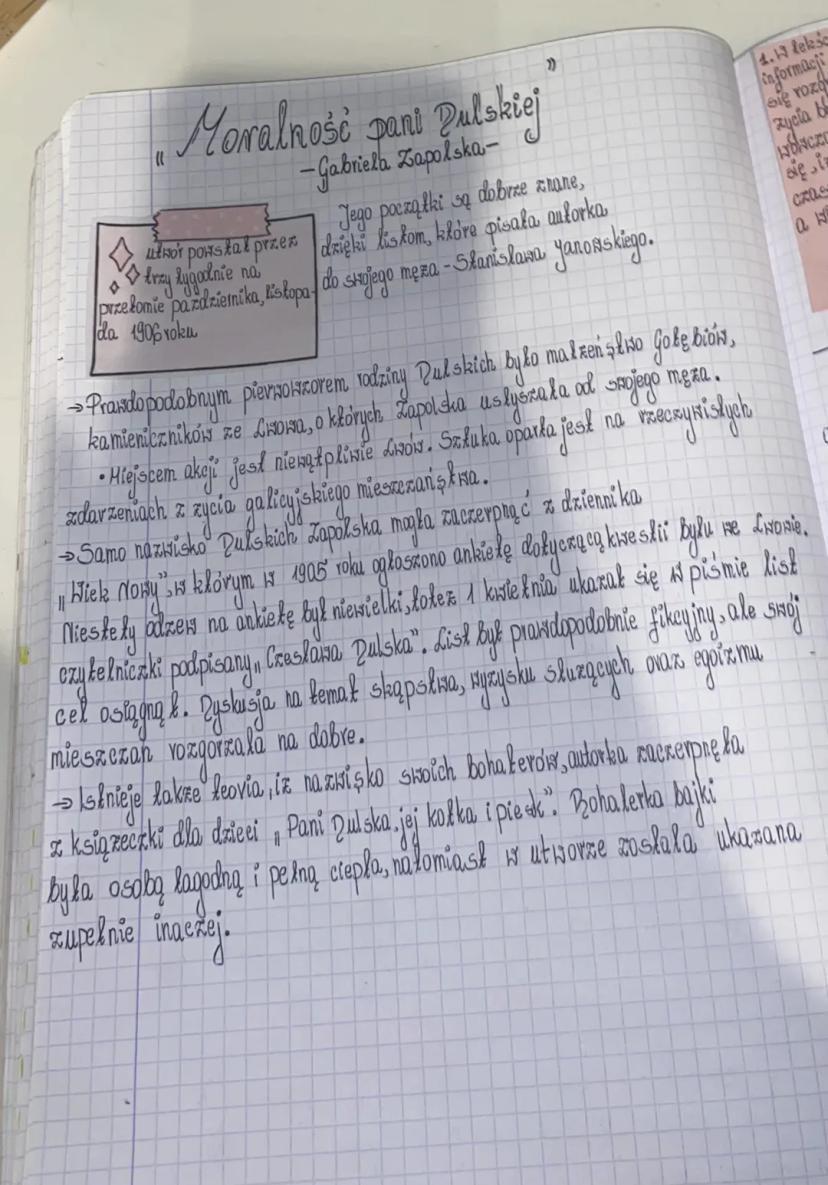 „Moralność pani Dulskiej”
-Gabriela Zapolska-
utwór powstał przez
trzy tygodnie na
przełomie października, listopa-
da 1906 roku
Jego początki są dobrze znane,
dzięki listom, które pisała autorka
do swojego męza - Stanisława Janowskiego.
→ Prawdopodobnym pierwowzorem rodziny Dulskich było malzeństwo Gołębiów,
kamieniczników ze Lwowa, o których Zapolska usłyszała od swojego męza.
• Miejscem akcji jest niewątpliwie Lwów. Sztuka oparta jest na rzeczywistych
zdarzeniach z zycia galicyjskiego mieszczaństwa.
→ Samo nazwisko Dulskich Zapolska mogła zaczerpnąć z dziennika
„Wiek Nowy”, w którym w 1905 roku ogłoszono ankietę dotyczącą kwestii bytu we Lwowie.
Niestety odzew na ankietę był niewielki, totez 1 kwietnia ukazał się w piśmie list
czytelniczki podpisany „Czesława Dulska”. List był prawdopodobnie fikcyjny, ale swój
cel osiągnął. Dyskusja na temat skąpstwa, wyzysku słuzących oraz egoizmu
mieszczan rozgorzała na dobre.
→ Istnieje takze teoria, iz nazwisko swoich bohaterów, autorka zaczerpnęła
z ksiązeczki dla dzieci „Pani Dulska, jej kotka i piesk”. Bohaterka bajki
była osobą łagodną i pełną ciepła, natomiast w utworze została ukazana
zupełnie inaczej.
1. W
informacji
się
zycia
się, iz
a